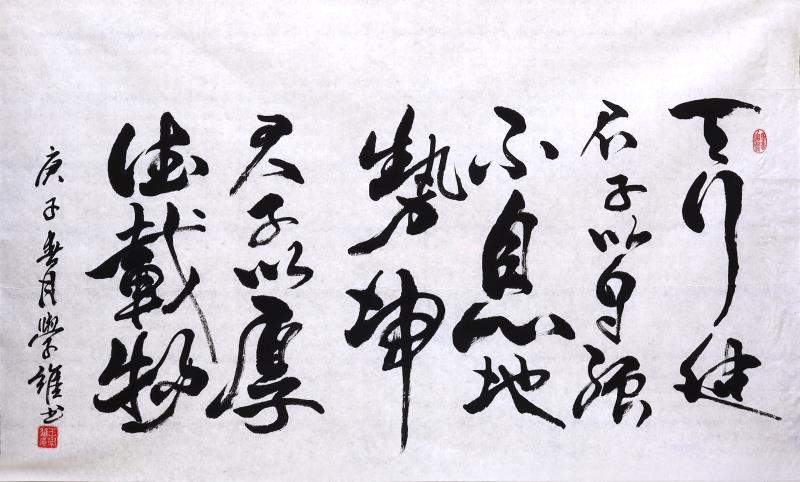 天行健
君子以自强
不息地
势坤
君子以厚
德载物
庚子春月学雄书